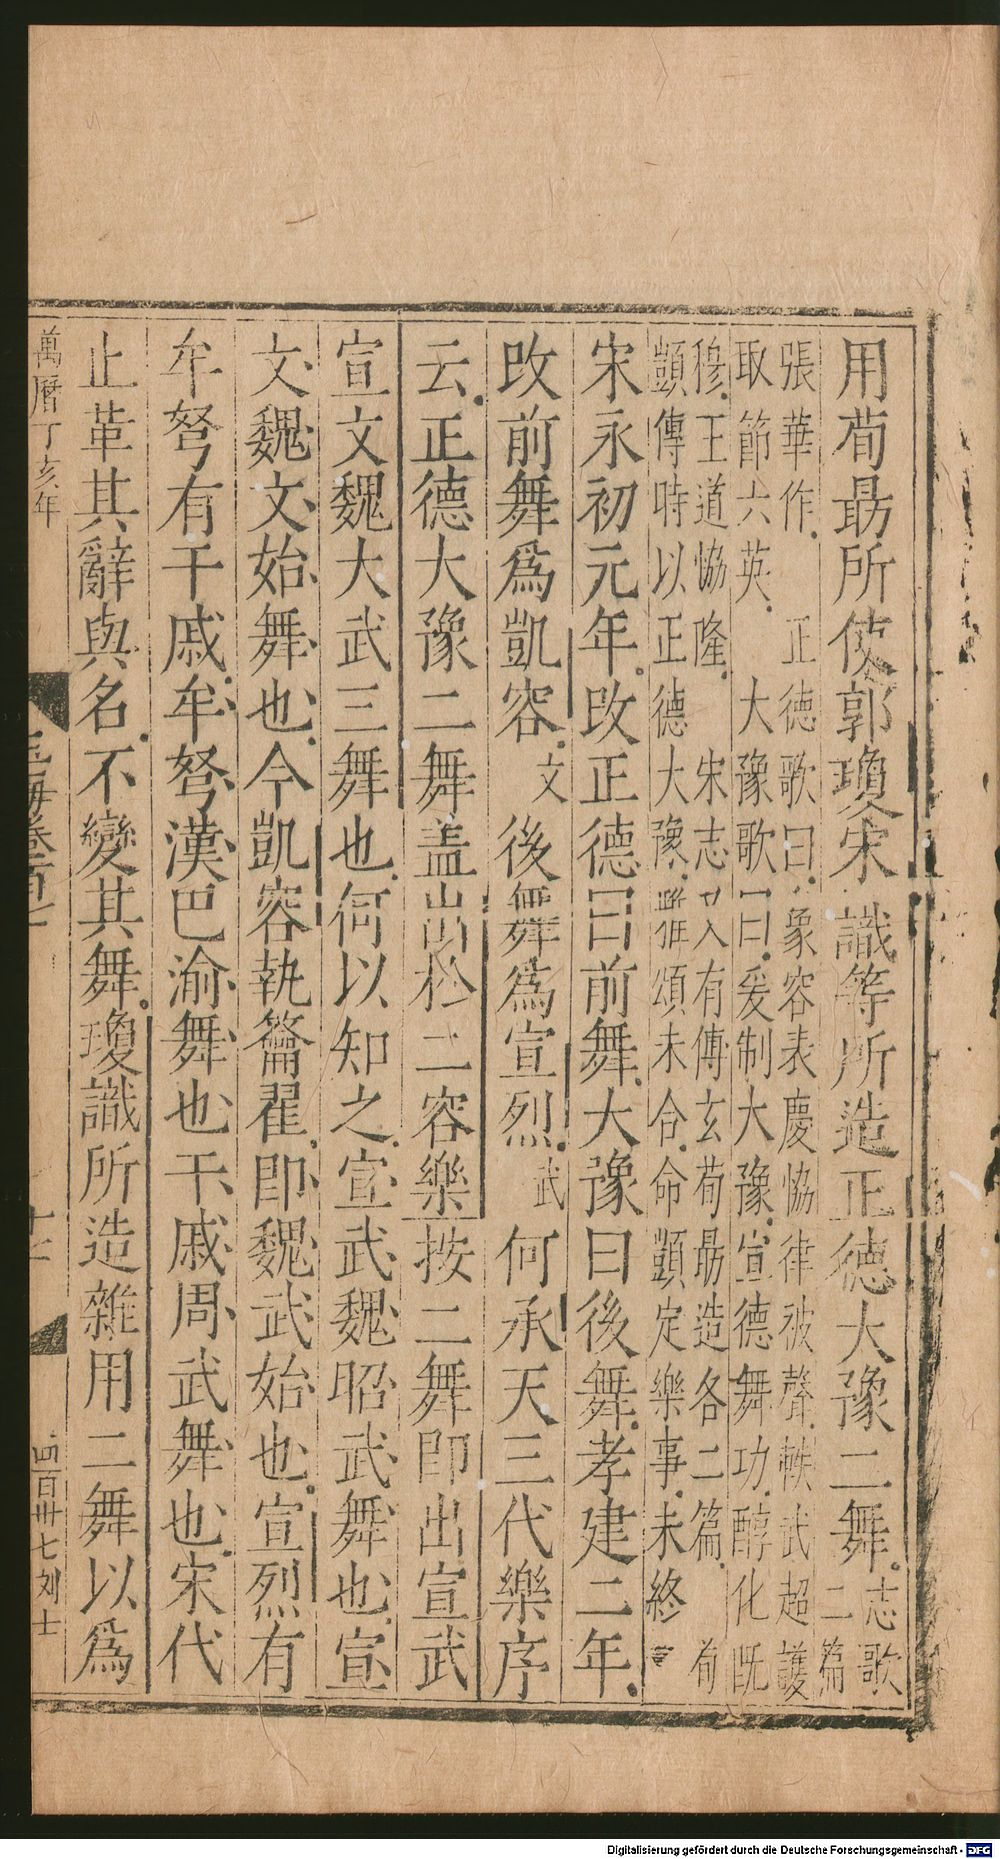 用荀勗所使郭瓊宋識等所造正德大豫二舞志歌二篇
張華作 正德歌曰象容表慶恊律被聲軼武超護
取節六英 大豫歌曰爰制大豫宣德舞功醇化旣
穆王道恊隆 宋志又有傅玄荀勗造各二篇 荀
顗傳時以正德大豫雅頌未合命顗定樂事未終
宋永初元年改正德曰前舞大豫曰後舞孝建二年
改前舞爲凱容文後舞爲宣烈武何承天三代樂序
云正德大豫二舞盖出於二容樂按二舞即出宣武
宣文魏大武三舞也何以知之宣武魏昭武舞也宣
文魏文始舞也今凱容執籥翟即魏武始也宣烈有
牟弩有干戚牟弩漢巴渝舞也干戚周武舞也宋代
止革其辭與名不變其舞瓊識所造雜用二舞以爲
萬曆丁亥年
玉海卷一百七
十七
四百卅七刘士
Digitalisierung gefördert durch die Deutsche Forschungsgemeinschaft - DFG